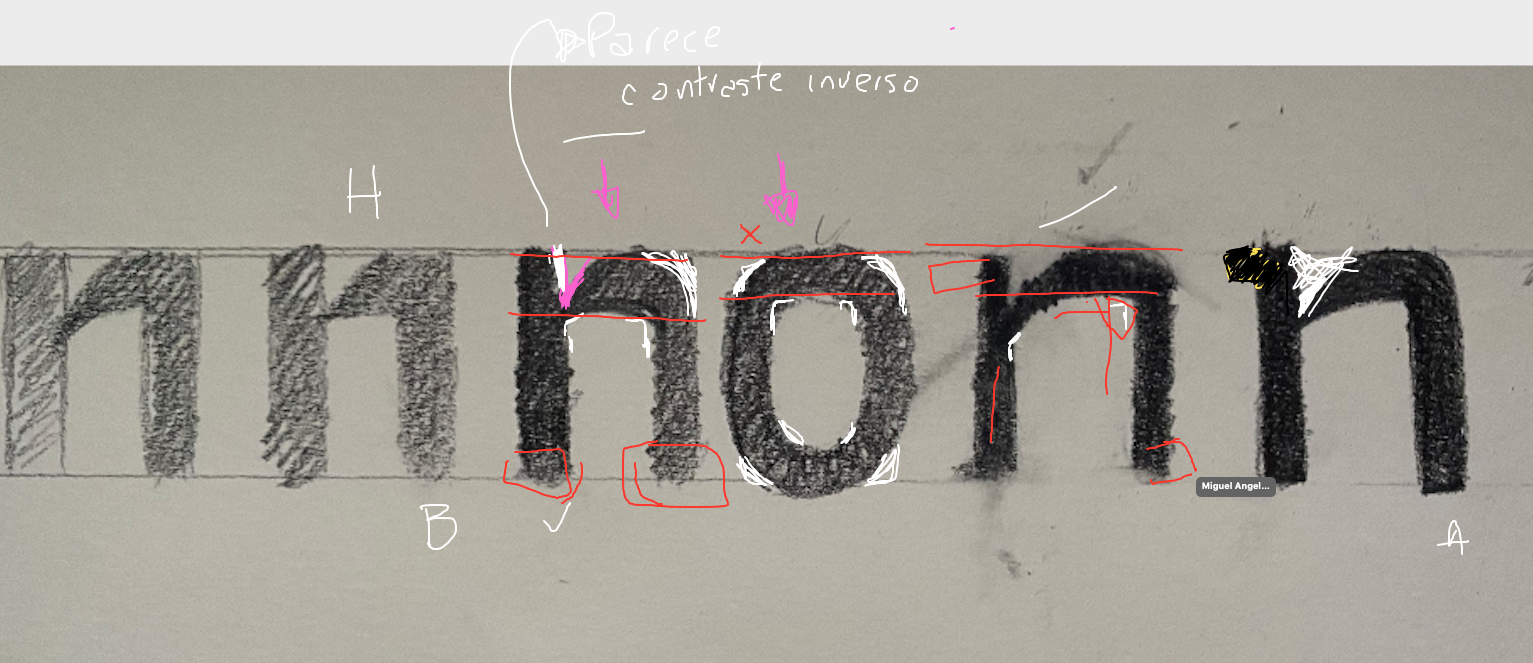 Parece
contraste inverso
H
n n n o n n
B
A
Miguel Angel...